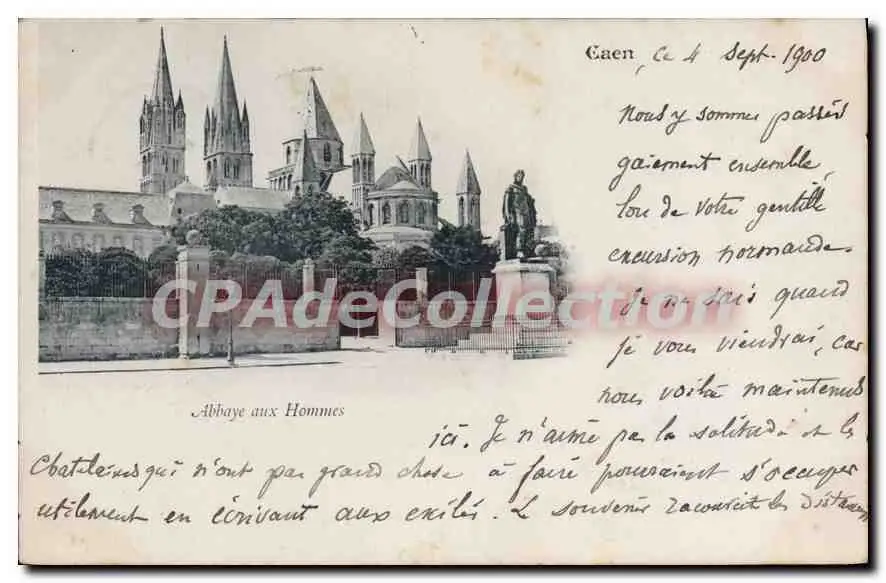 Caen, ce 4 Sept. 1900
Nous y sommes passés
gaiement ensemble,
lors de votre gentille
excursion normande.
Je ne sais quand
je vous viendrai, car
nous voilà maintenus
ici. Je n'aime pas la solitude et les
Chatelains qui n'ont pas grand chose à faire pourraient s'occuper
utilement en écrivant aux exilés. Le souvenir raccourcit les distances
Abbaye aux Hommes
CPArama.com